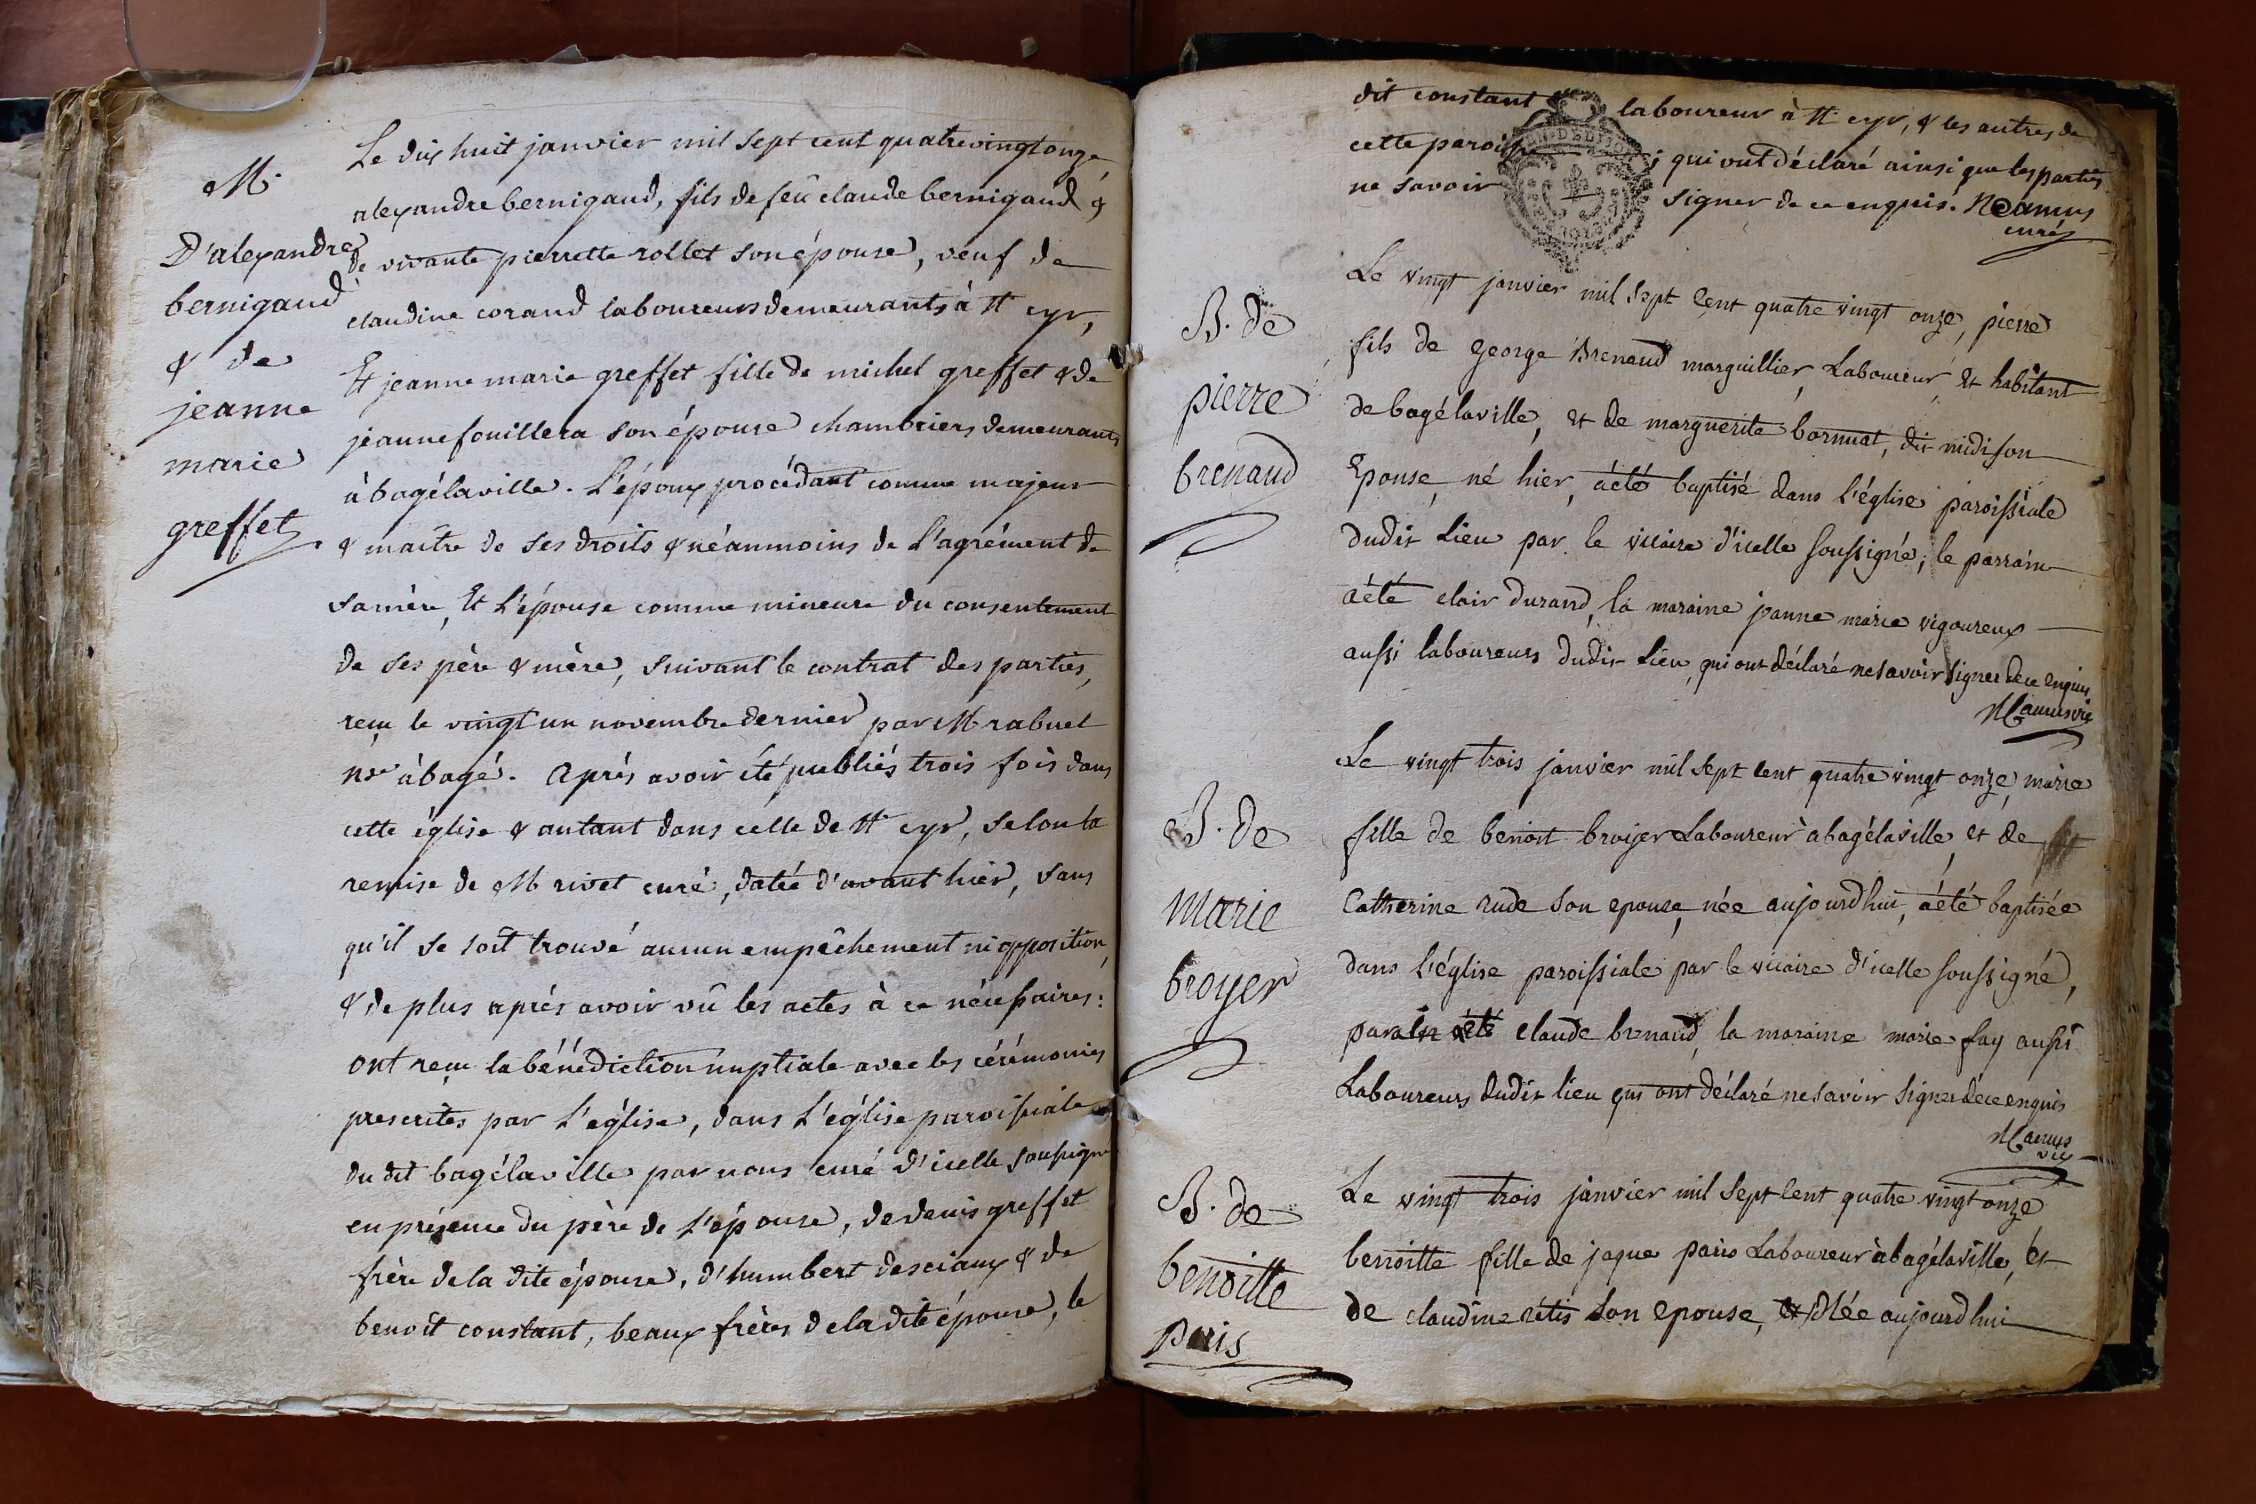 M.
D'alexandre
bernigaud
& de
jeanne
marie
greffet
Le dix huit janvier mil sept cent quatrevingt onze
alexandre bernigaud, fils de feû claude bernigaud &
de vivante pierrette rollet son épouse, veuf de
claudine corand laboureurs demeurants à St cyr,
Et jeanne marie greffet fille de michel greffet & de
jeanne fouillera son épouse chambriers demeurants
à bagélaville. L'époux procédant comme majeur
& maître de ses droits & néanmoins de l'agrément de
sa mère, Et l'épouse comme mineure du consentement
de ses père & mère, suivant le contrat des parties,
reçu le vingt un novembre dernier par M rabuel
nre à bagé. Après avoir été publiés trois fois dans
cette église & autant dans celle de St cyr, selon la
remise de M rivet curé, datée d'avant hier, sans
qu'il se soit trouvé aucun empêchement ni opposition,
& de plus après avoir vû les actes à ce nécessaires:
ont reçu la bénédiction nuptiale avec les cérémonies
prescrites par l'église, dans l'église paroissiale
du dit bagélaville par nous curé d'icelle soussigné
en présence du père de l'épouse, de denis greffet
frère de la dite épouse, d'humbert desciaux & de
benoît constant, beaux frères de la dite épouse, le
dit constant laboureur à St cyr, & les autres de
cette paroisse ; qui ont déclaré ainsi que les parties
ne savoir signer de ce enquis. Camus
curé
B. de
pierre
brenaud
Le vingt janvier mil sept cent quatre vingt onze, pierre
fils de george Brenaud marguillier, Laboureur et habitant
de bagélaville, et de marguerite bornuat, dit midi son
Epouse, né hier, a été baptisé dans l'église paroissiale
dudit Lieu par le vicaire d'icelle soussigné; le parrain
a été clair durand, la maraine jeanne marie vigoureux
aussi laboureurs dudit Lieu, qui ont déclaré ne savoir signer de ce enquis
Camus vic
B. de
marie
broyer
Le vingt trois janvier mil sept cent quatre vingt onze, marie
fille de benoit broyer Laboureur à bagélaville, et de
Catherine rude son epouse, née aujourd'hui, a été baptisée
dans l'église paroissiale par le vicaire d'icelle soussigné,
parain a été claude brenaud, la maraine marie fay aussi
Laboureurs dudit lieu qui ont déclaré ne savoir signer de ce enquis
Camus
vic
B. de
benoitte
paris
Le vingt trois janvier mil sept cent quatre vingt onze
benoitte fille de jaque paris Laboureur à bagélaville, et
de claudine rétis son epouse, née aujourd'hui